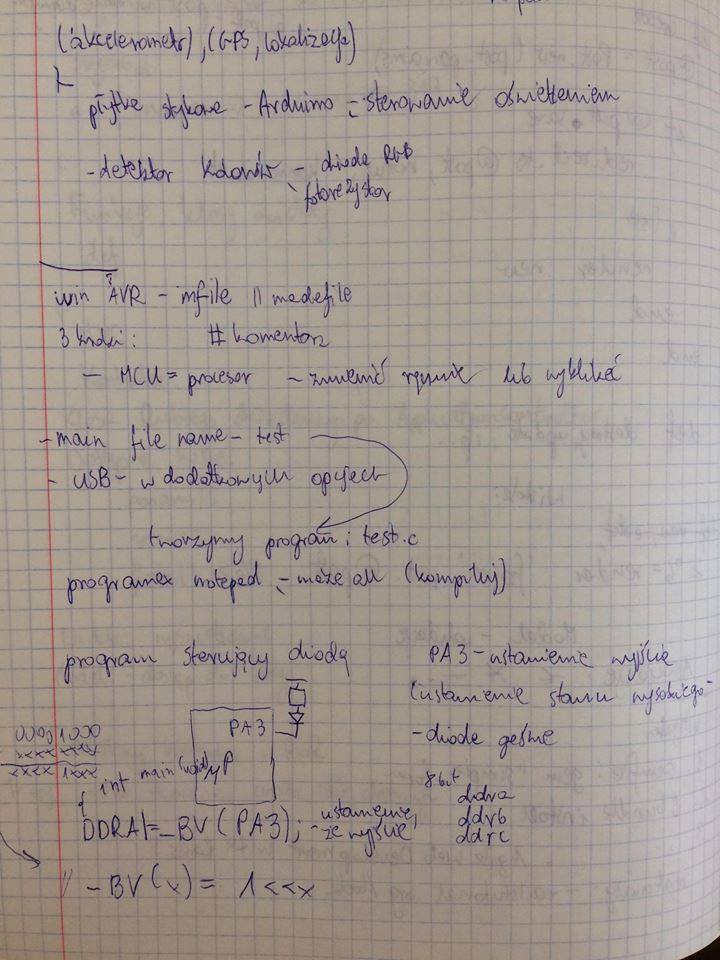 (akcelerometr), (GPS, lokalizacja)
płytke stykowe - Arduino - sterowanie oświetleniem
- detektor kolorów - dioda RGB
fotorezystor
win AVR - mfile || madefile
3 kroki: # komentarz
- MCU = procesor - zmienić ręcznie lub wyklikać
- main file name - test
- USB - w dodatkowych opcjach
tworzymy program: test.c
programex notepad - make all (kompiluj)
program sterujący diodą
PA3 - ustawienie wyjścia
(ustawienie stanu wysokiego -
- diode gaśnie
PA3
μP
0000 1000
xxxx xxxx
xxxx 1xxx
8 bit
ddra
ddrb
ddrc
int main (void)
{
DDRA|=_BV(PA3); - ustawienie,
że wyjście
// _BV(x) = 1<<x